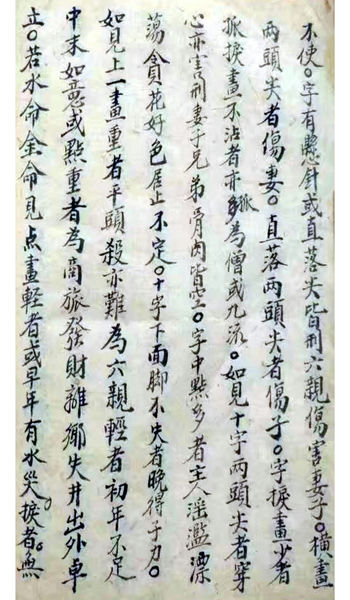 不使。字有懸針或直落尖皆刑六親傷害妻子。橫畫
兩頭尖者傷妻。直落兩頭尖者傷子。字捩畫少者
孤捩畫不沾者亦孤多為僧或九流。如見十字兩頭尖者穿
心亦害刑妻子兄弟骨肉皆空。字中點多者主人淫濫漂
蕩貪花好色居止不定。十字下面脚不失者晚得子力。
如見上一畫重者平頭殺亦難為六親輕者初年不足
中末如意或點重者為商旅發財離鄉失井出外卓
立。若水命金命見点畫輕者或早年有水災。捩者。無